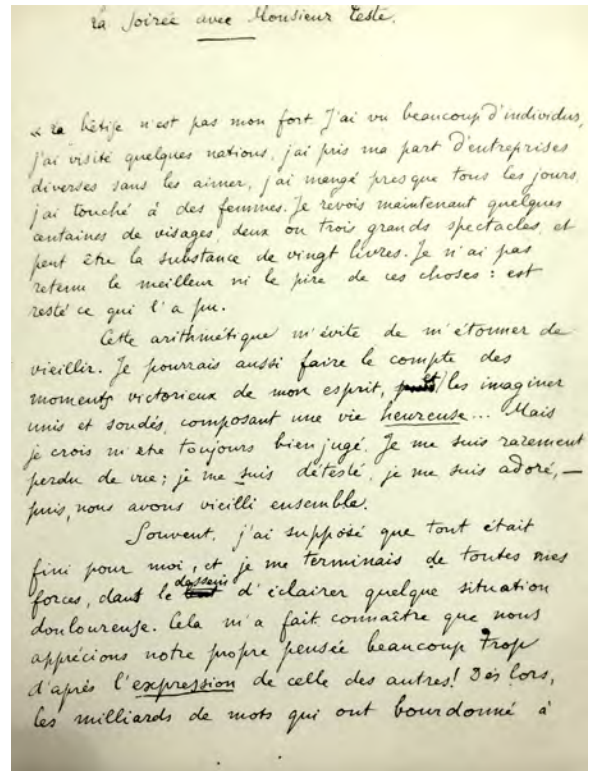 La Soirée avec Monsieur Teste.
« La bêtise n'est pas mon fort. J'ai vu beaucoup d'individus,
j'ai visité quelques nations, j'ai pris ma part d'entreprises
diverses sans les aimer, j'ai mangé presque tous les jours,
j'ai touché à des femmes. Je revois maintenant quelques
centaines de visages, deux ou trois grands spectacles, et
peut être la substance de vingt livres. Je n'ai pas
retenu le meilleur ni le pire de ces choses : est
resté ce qui l'a pu.
Cette arithmétique m'évite de m'étonner de
vieillir. Je pourrais aussi faire le compte des
moments victorieux de mon esprit, et les imaginer
unis et soudés, composant une vie heureuse... Mais
je crois m'etre toujours bien jugé. Je me suis rarement
perdu de vue ; je me suis détesté, je me suis adoré, —
puis, nous avons vieilli ensemble.
Souvent, j'ai supposé que tout était
fini pour moi, et je me terminais de toutes mes
forces, dans le dessein d'éclairer quelque situation
douloureuse. Cela m'a fait connaître que nous
apprécions notre propre pensée beaucoup trop
d'après l'expression de celle des autres! Dès lors,
les milliards de mots qui ont bourdonné à